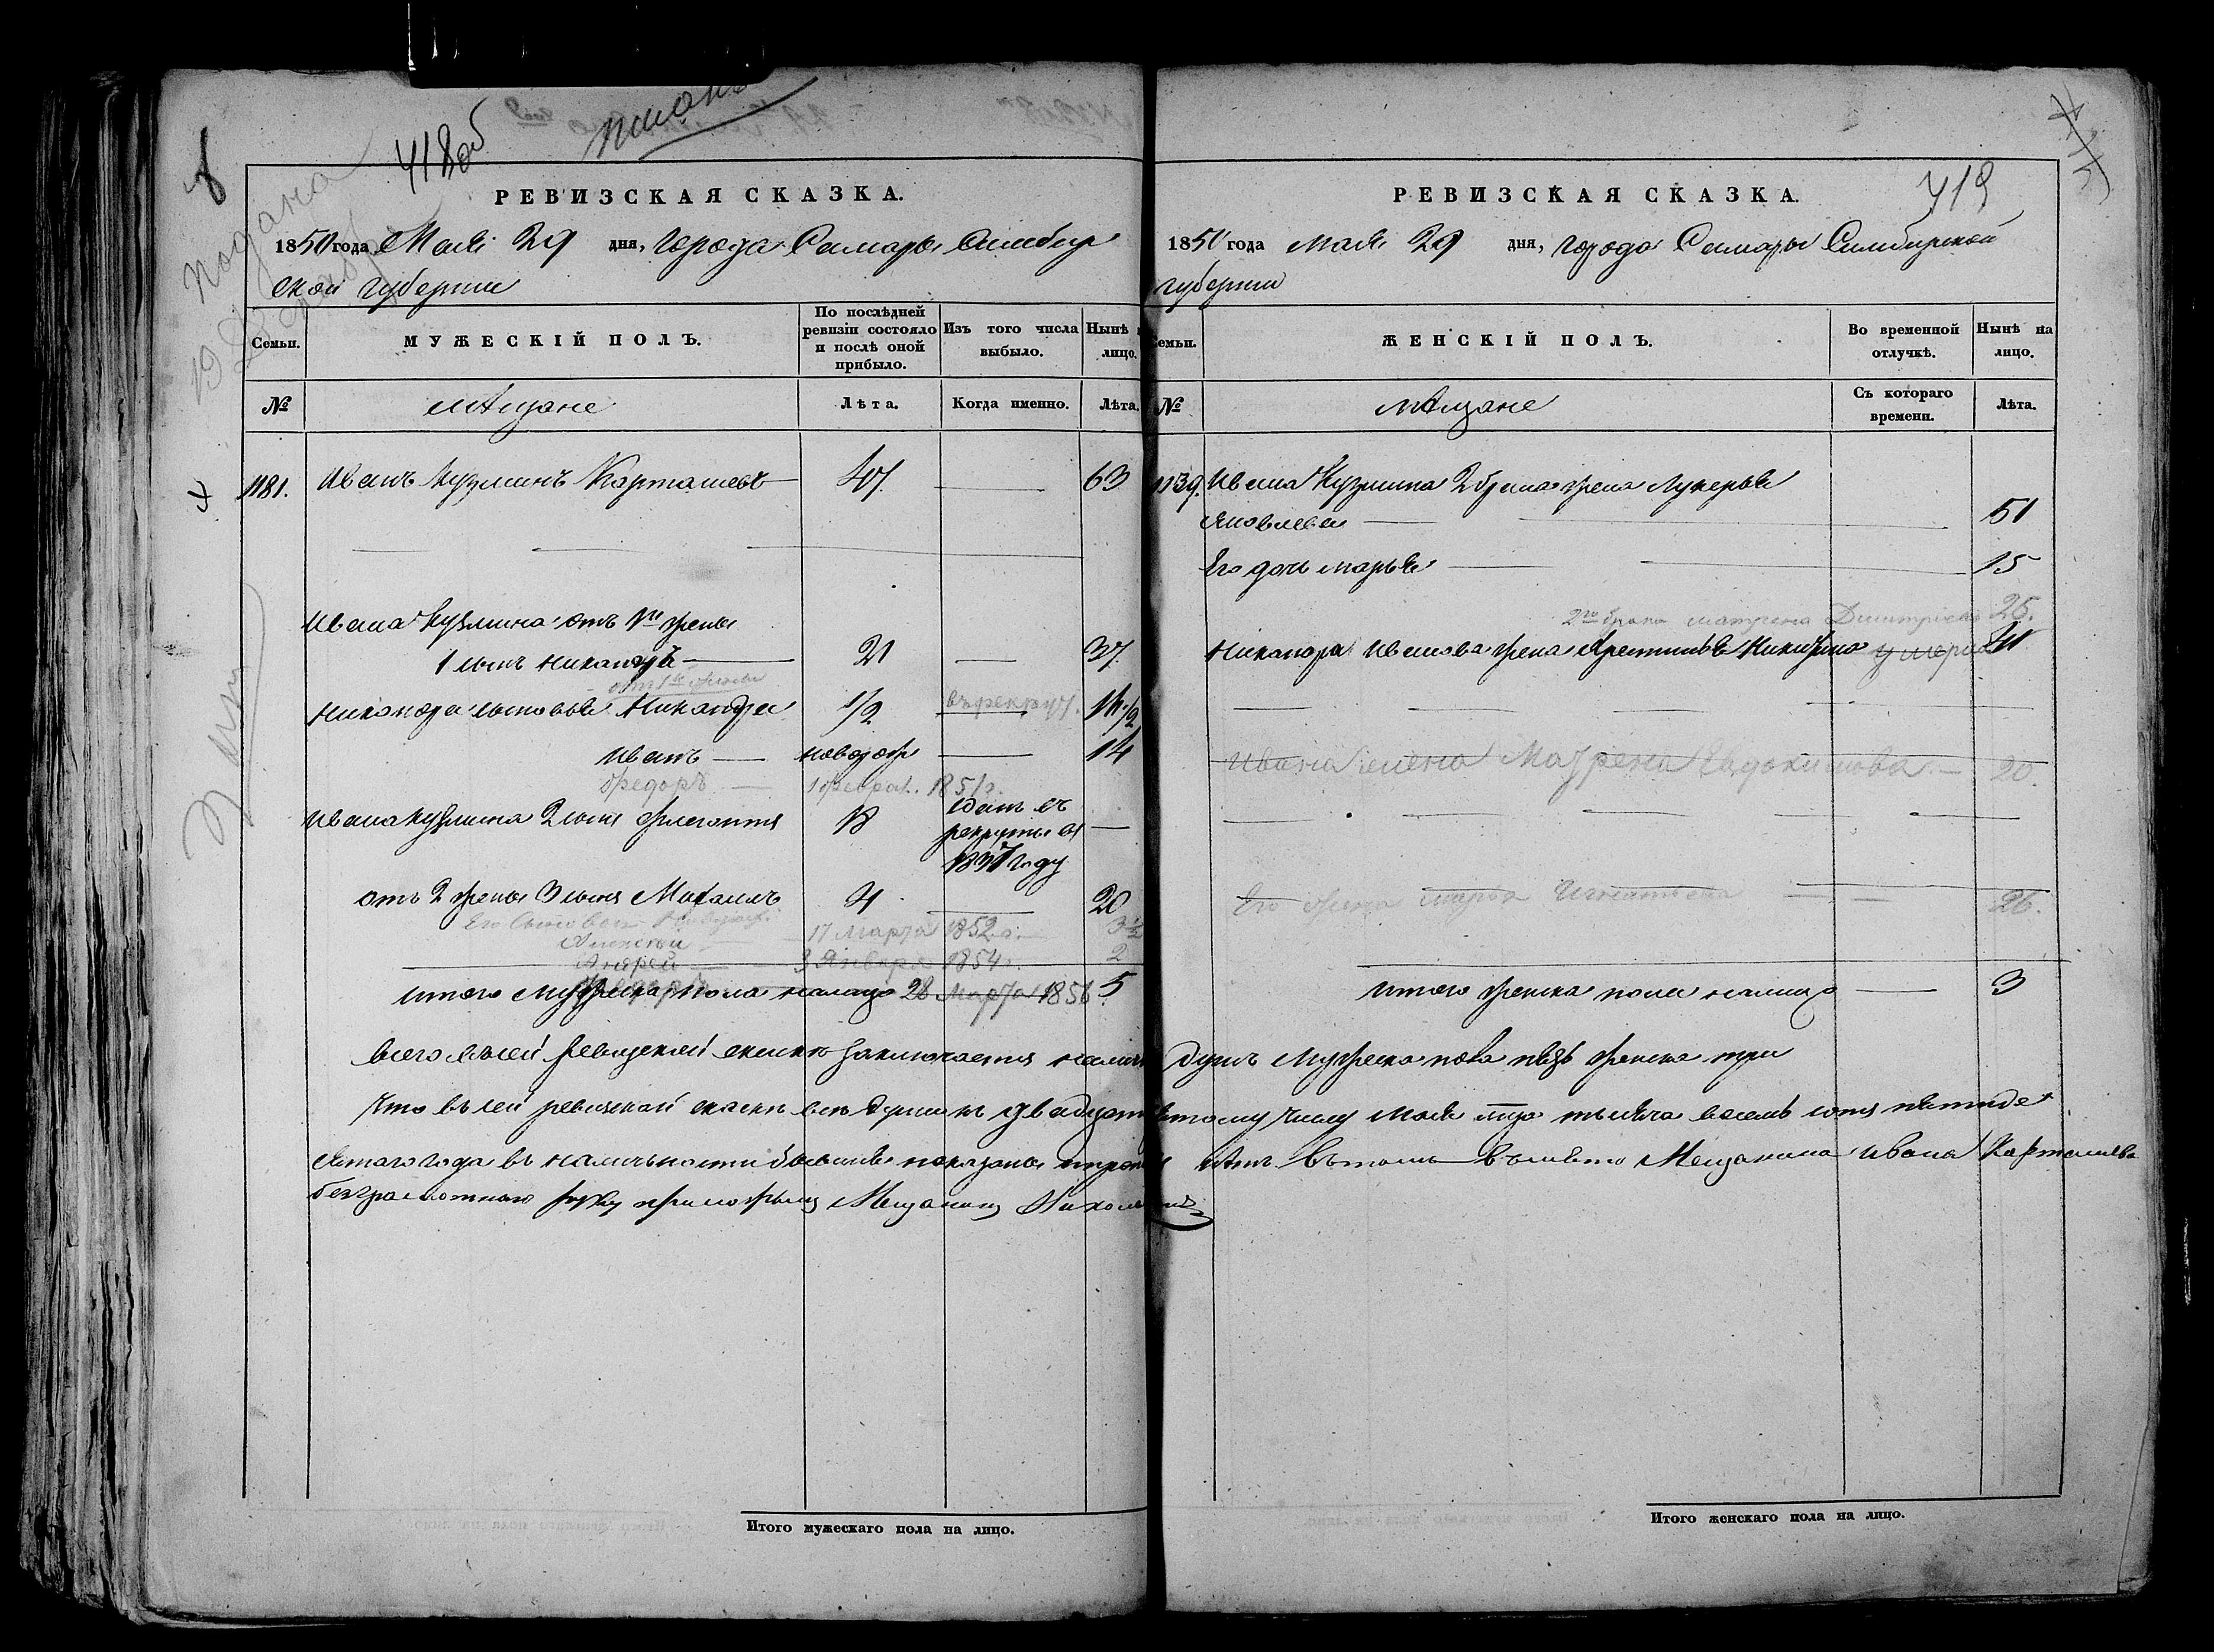 418 об
подана
РЕВИЗСКАЯ СКАЗКА.
1850 года Мая 29 дня, города Самары Симбир
ской губернии
Семьи.
МУЖЕСКІЙ ПОЛЪ.
По послѣдней ревизіи состояло и послѣ оной прибыло.
Изъ того числа выбыло.
Нынѣ на лицо.
№
мѣщане
Лѣта.
Когда именно.
Лѣта.
1181. Иванъ Кузминъ Карташевъ — 47. — 63
Ивана Кузмина отъ 1й жены
1 сынъ Никаноръ — 21 — 37.
отъ 1й жены
Никанора сыновья Никандра 1/2 въ рекрут. 16 1/2
Иванъ — новорож — 14
Федоръ — 1 Феврал. 1851 г.
Ивана Кузмина 2 сынъ Флегонтъ 18 отданъ въ —
рекруты въ
1837 году
отъ 2 жены 3 сынъ Михаилъ 4 — 20
Его Сыновья
Алексей — 17 Марта 1852 г. — 3 1/2
Андрей — 3 Января 1854 г. 2
Федоръ 28 Марта 1856
итого мужеска пола налицо 5
Итого мужескаго пола на лицо.
419
РЕВИЗСКАЯ СКАЗКА.
1850 года мая 29 дня, города Самары Симбирской
губернии
Семьи.
ЖЕНСКІЙ ПОЛЪ.
Во временной отлучкѣ.
Нынѣ на лицо.
№
мѣщане
Съ котораго времени.
Лѣта.
1139. Ивана Кузмина 2 брака жена Лукерья
Яковлева — 51
Его дочь марья — 15
2го брака матрена Дмитриева 25.
Никанора Иванова жена Никифо умерла
Ивана жена Матрена Евдокимова — 20.
Его жена марья Игнатьева — 26.
итого женска пола налицо — 3
всего въ сей ревизской скаске заключается налич душъ мужеска пола пять женска три
Что въ сей ревизской скаске все души къ двадцати тому числу мая тысяча восемь сотъ пятиде
сятого года въ наличности бывшия показаны лѣтъ въ томъ вместо Мещанина Ивана Карташева
безграмотного руку приложилъ Мещанинъ
Итого женскаго пола на лицо.